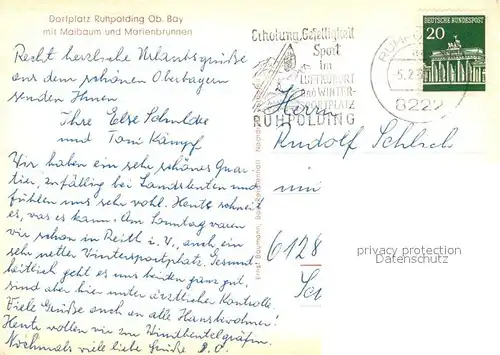 Dorfplatz Ruhpolding Ob. Bay
mit Maibaum und Marienbrunnen
Recht herzliche Urlaubsgrüße
aus dem schönen Oberbayern
senden Ihnen
Ihre Else Schulde
und Toni Kämpf
Wir haben ein sehr schönes Quar-
tier, zufällig bei Landsleuten und
fühlen uns sehr wohl. Heute schneit
es, was es kann. Am Sonntag waren
wir schon in Reith i. V., auch ein
sehr netter Wintersportplatz. Gesund-
heitlich geht es uns beiden ganz gut,
sind aber hier unter ärztlicher Kontrolle.
Viele Grüße auch an alle Hausbewohner!
Heute wollen wir zur Windbeutelgräfin.
Nochmals viele liebe Grüße D. O.
Erholung, Geselligkeit
Sport
im
LUFTKURORT
und WINTER-
SPORTPLATZ
RUHPOLDING
RUHP
-5.2.
8222
DEUTSCHE BUNDESPOST
20
Herrn
Rudolf Schlech
6128
privacy protection
Datenschutz
Ernst Baumann, Bad Reichenhall